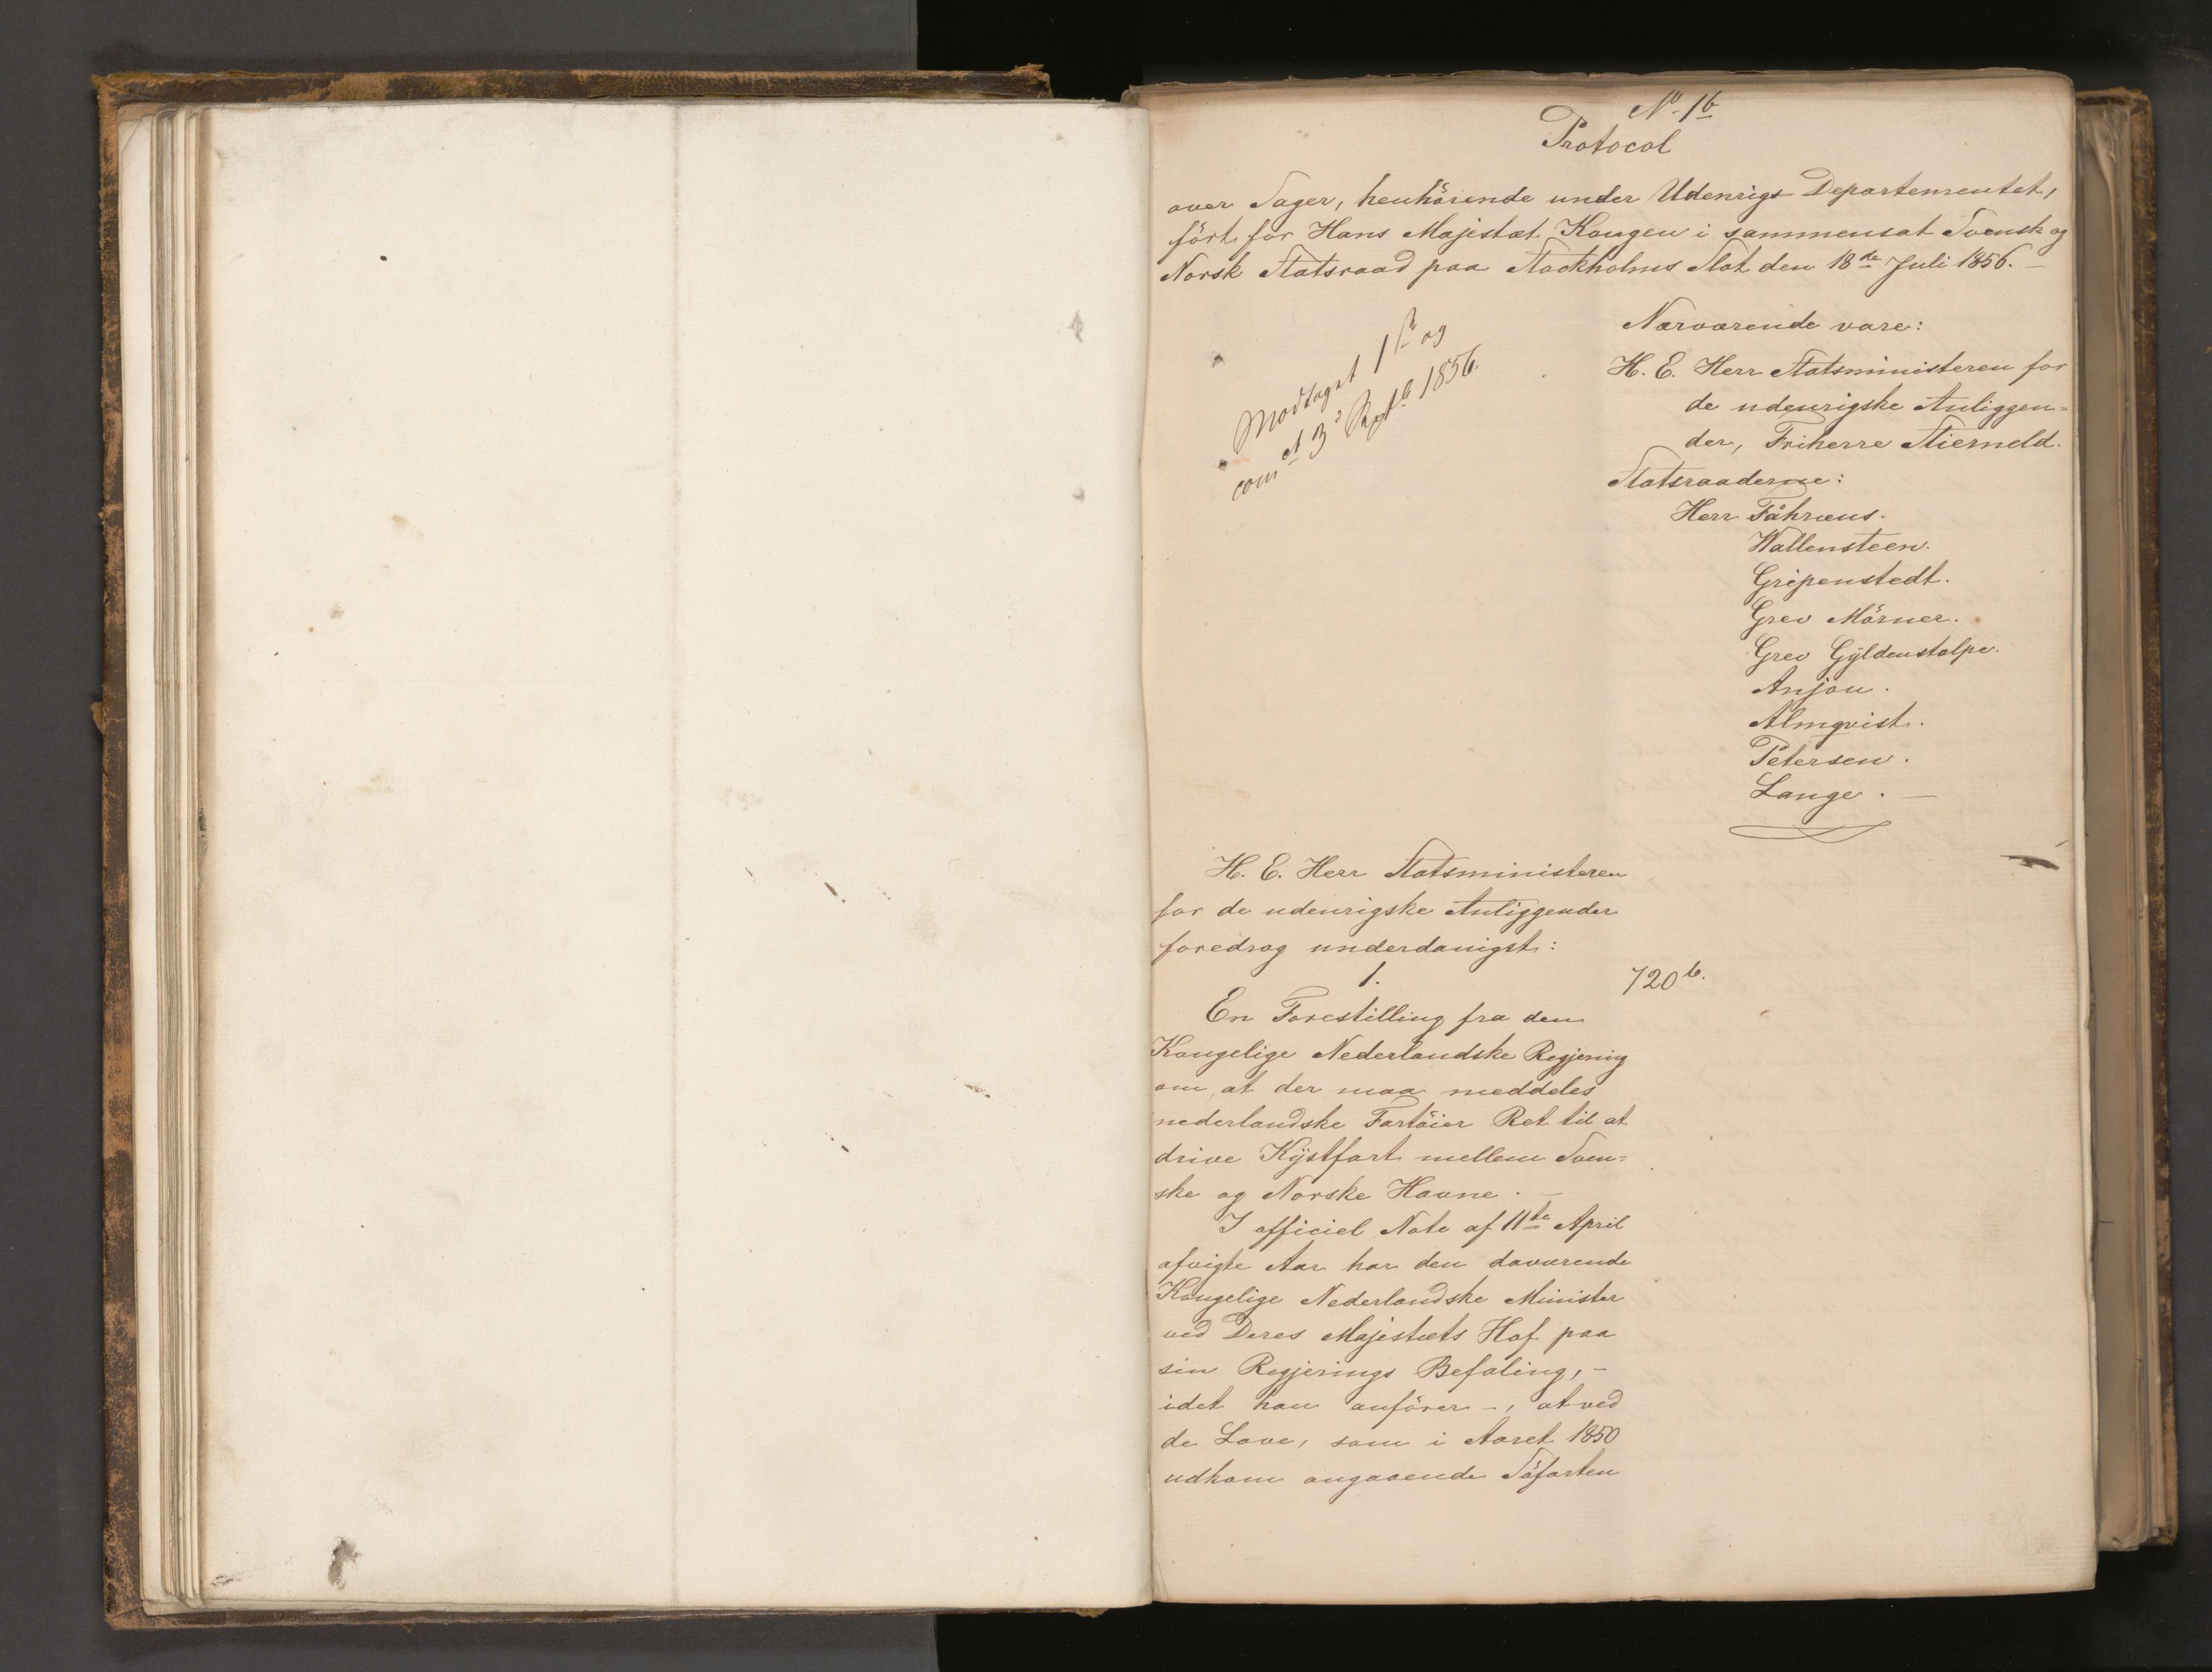 No 1b
Protocol
over Sager, henhörende under Udenrigs-Departementet,
fört for Hans Majestæt Kongen i sammensat Svensk og
Norsk Statsraad paa Stockholms Slot den 18de Juli 1856. —
Modtaget 1st og
com et 3d Septb 1856.
Nærværende vare:
H. E. Herr Statsministeren for
de udenrigske Anliggen=
der, Friherre Stierneld.
Statsraaderne:
Herr Fåhræus.
Wallensteen.
Gripenstedt.
Grev Mörner.
Grev Gÿldenstolpe.
Anjou.
Almqvist.
Petersen.
Lange. —
H. E. Herr Statsministeren
for de udenrigske Anliggender
foredrog underdanigst:
1.
720b.
En Forestilling fra den
Kongelige Nederlandske Regjering
om, at der maa meddeles
nederlandske Fartöier Ret til at
drive Kÿstfart mellem Sven=
ske og Norske Havne. —
I officiel Note af 11te April
afvigte Aar har den daværende
Kongelige Nederlandske Minister
ved Deres Majestæts Hof paa
sin Regjerings Befaling, —
idet han anförer —, at ved
de Love, som i Aaret 1850
udkom angaaende Söfarten